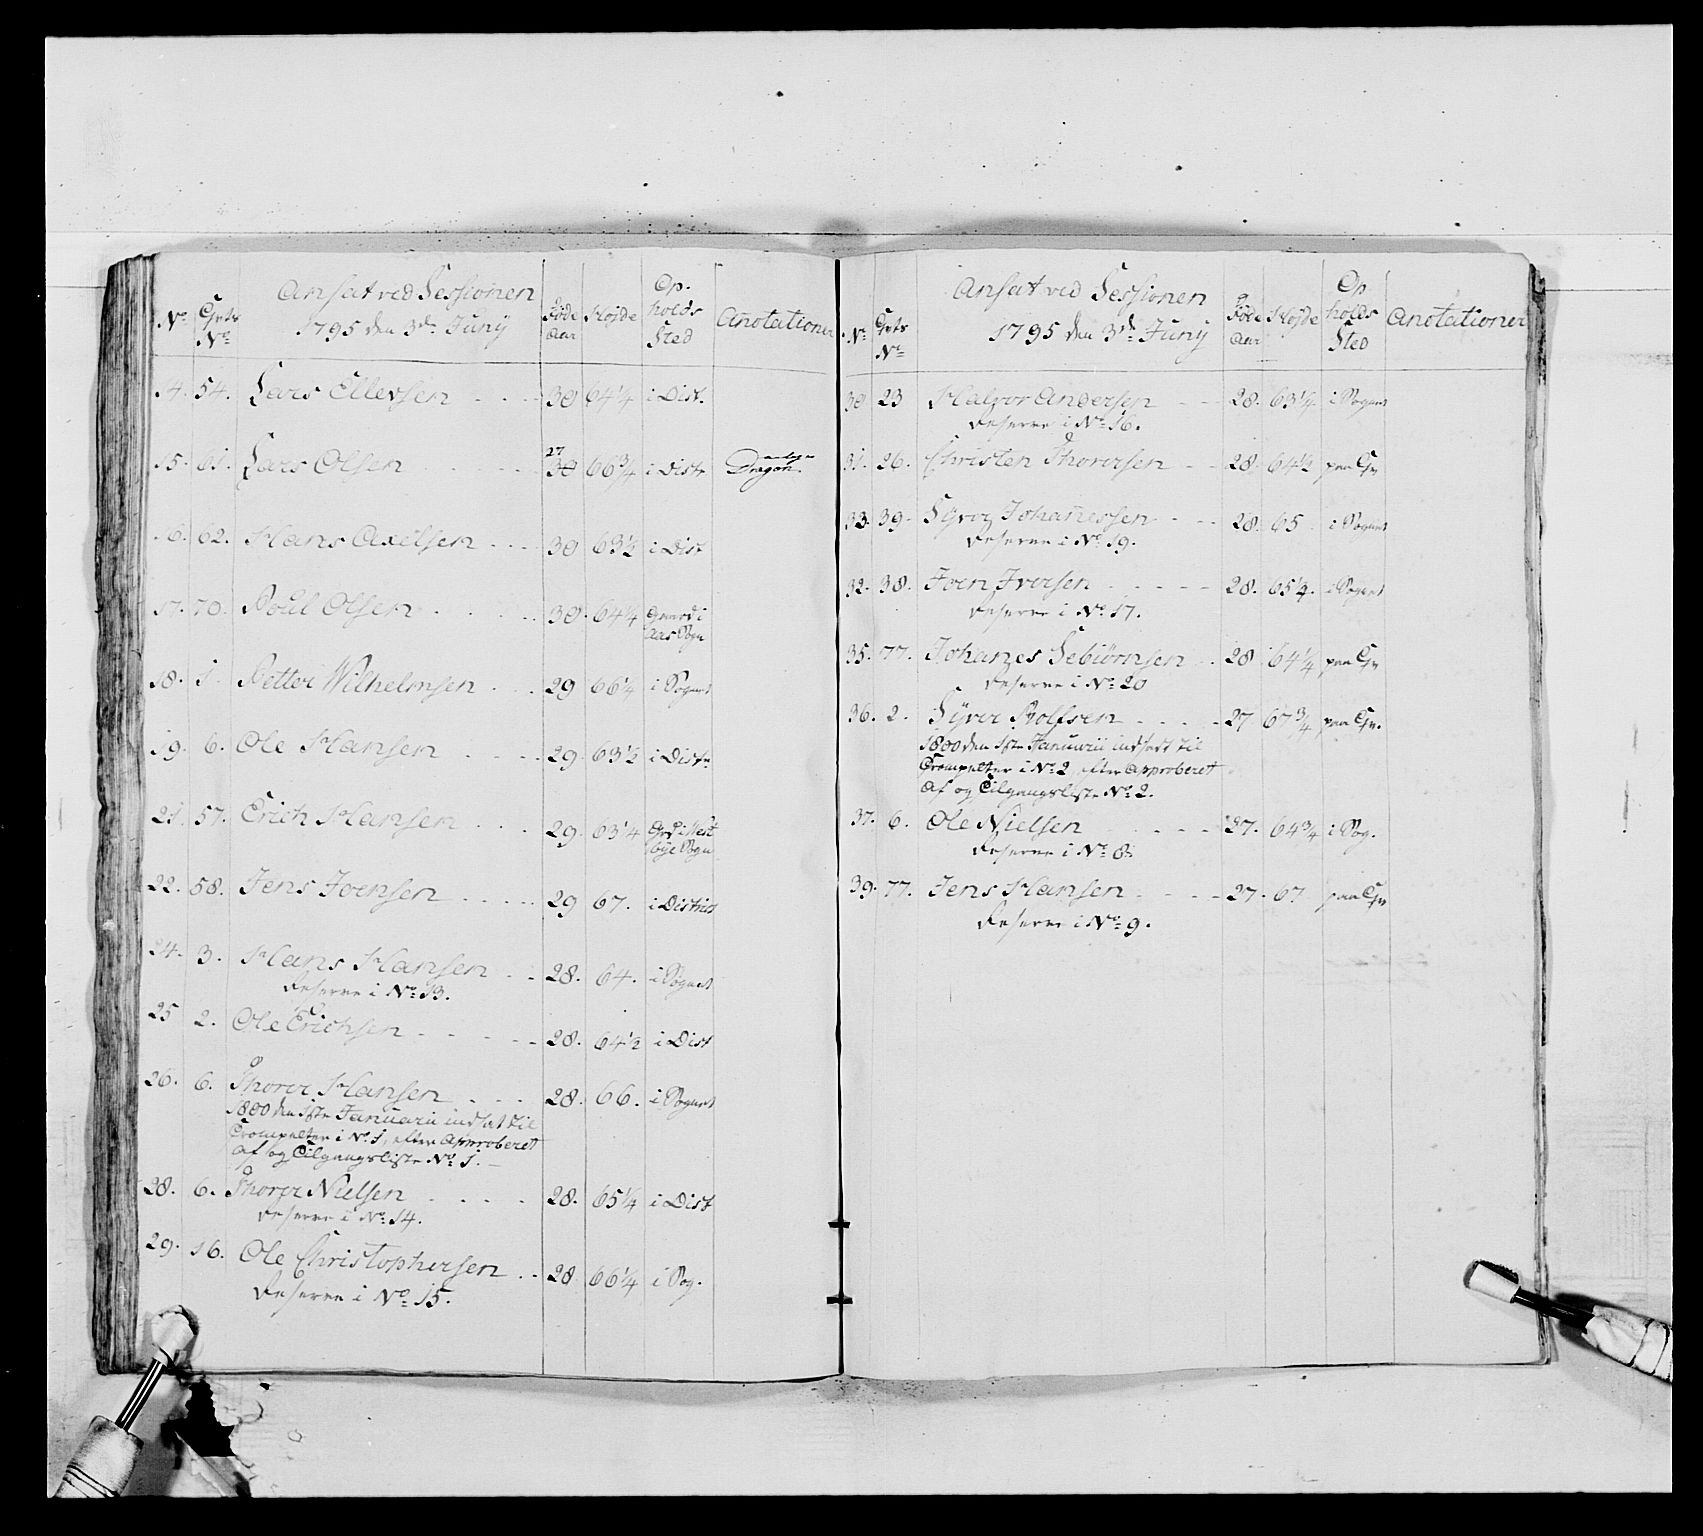 Ansat ved Sessionen
1795 den 3de Junij
No. Grts No. Føde Aar Højde Opholds Sted Anotationer
14. 54. Lars Ellevsen 30 64¼ i Dist.
15. 61. Lars Olsen 27 30 66¾ i Distr Dragon
16. 62. Hans Axelsen 30 63½ i Dist
17. 70. Poul Olsen 30. 64¼ Grard i
Aas Sogn
18. 1. Petter Wilhelmsen 29 66¼ i Sognet
19. 6. Ole Hansen 29 63½ i Distr
21. 57. Erich Hansen 29. 63¼ Grd i West
bye Sogn
22. 58. Jens Joensen 29 67. i District
24. 3. Hans Hansen 28. 64. i Sognet
Reserve i No. 13.
25 2. Ole Erichsen 28. 64½ i Dist
26. 6. Thorer Hansen 28. 66. i Sognet
1800 den 1ste Januarii indsat til
Trompetter i No. 1, efter Approberet
Af og Tilgangsliste No. 1.
28. 6. Thorer Nielsen 28. 65¼ i Dist
Reserve i No. 14.
29. 16. Ole Christophersen 28 66¼ i Sog.
Reserve i No. 15.
Ansat ved Sessionen
1795 den 3de Junij
No. Grts No. Føde Aar Højde Opholds Sted Anotationer
30 23 Halvor Andersen 28. 63¼ i Sognet
Reserve i No. 16.
31. 26. Christen Thorersen 28. 64½ paa Gr
33. 39. Syver Johanessen 28. 65 i Sognet
Reserve i No. 19.
32. 38. Joen Iversen 28. 65¼. i Sognet
Reserve i No. 17.
35. 77. Johanes Sebiørnsen 28 64¼ paa Gr
Reserve i No. 20
36. 2. Syver Rolfsen 27 67¾ paa Gr.
1800 den 1ste Januarii indsadt til
Trompetter i No. 2, efter Approberet
Af og Tilgangsliste No. 2.
37. 6. Ole Nielsen 27. 64¾ i Sog.
Reserve i No. 8.
39. 77. Jens Hansen 27. 67 paa Gr
Reserve i No. 9.